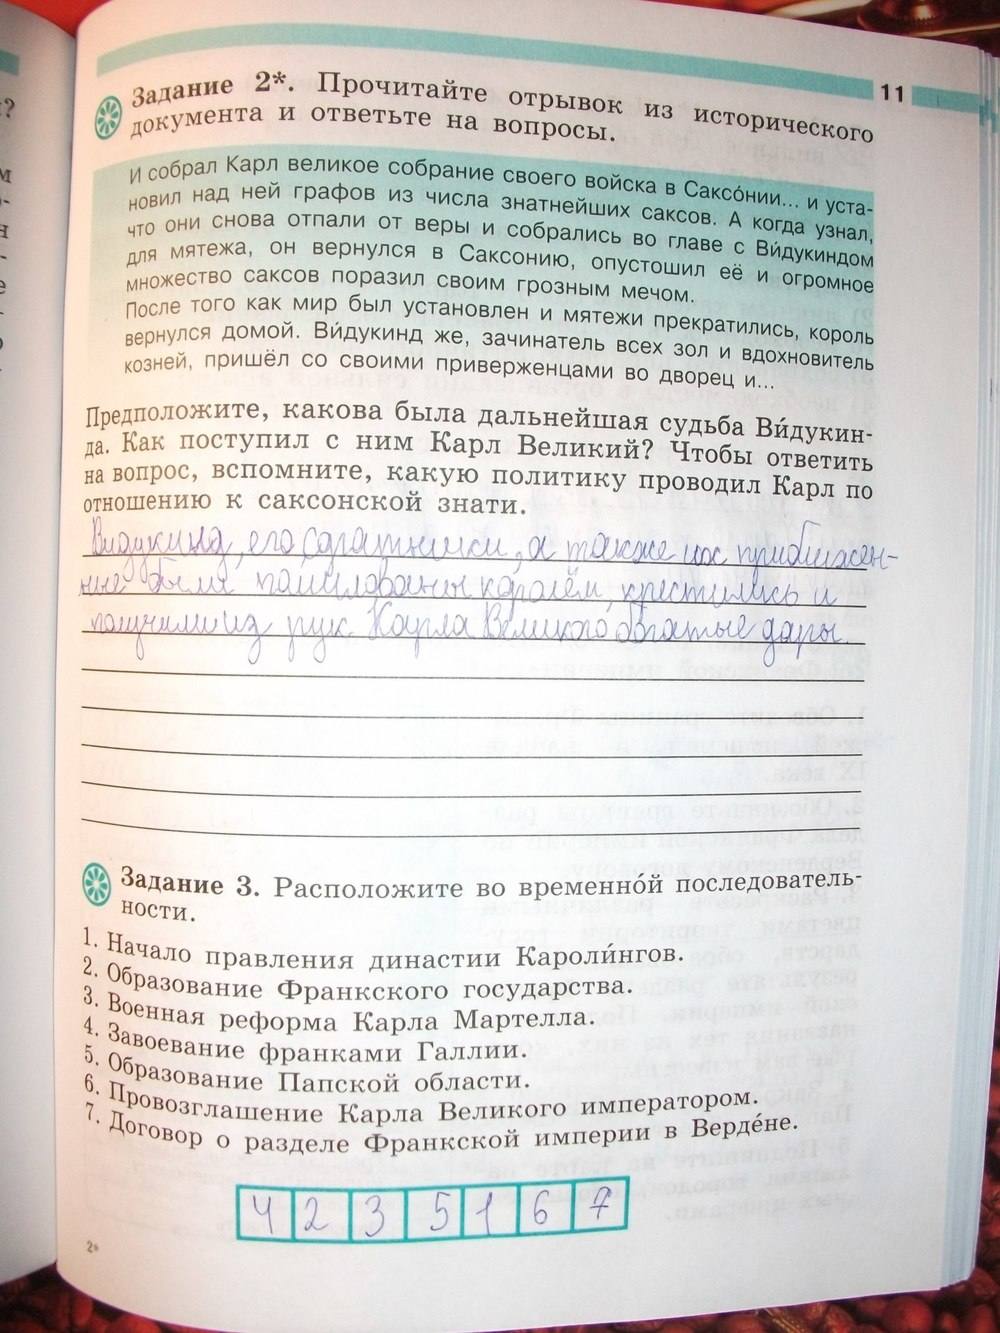 11
Задание 2*. Прочитайте отрывок из исторического
документа и ответьте на вопросы.
И собрал Карл великое собрание своего войска в Саксо́нии... и уста-
новил над ней графов из числа знатнейших саксов. А когда узнал,
что они снова отпали от веры и собрались во главе с Ви́дукиндом
для мятежа, он вернулся в Саксонию, опустошил её и огромное
множество саксов поразил своим грозным мечом.
После того как мир был установлен и мятежи прекратились, король
вернулся домой. Ви́дукинд же, зачинатель всех зол и вдохновитель
козней, пришёл со своими приверженцами во дворец и...
Предположите, какова была дальнейшая судьба Ви́дукин-
да. Как поступил с ним Карл Великий? Чтобы ответить
на вопрос, вспомните, какую политику проводил Карл по
отношению к саксонской знати.
Видукинд, его соратники, а также их приближен-
ные были помилованы королём, крестились и
получили из рук Карла Великого богатые дары.
Задание 3. Расположите во временно́й последователь-
ности.
1. Начало правления династии Кароли́нгов.
2. Образование Франкского государства.
3. Военная реформа Карла Мартелла.
4. Завоевание франками Галлии.
5. Образование Папской области.
6. Провозглашение Карла Великого императором.
7. Договор о разделе Франкской империи в Верде́не.
4 2 3 5 1 6 7
2*